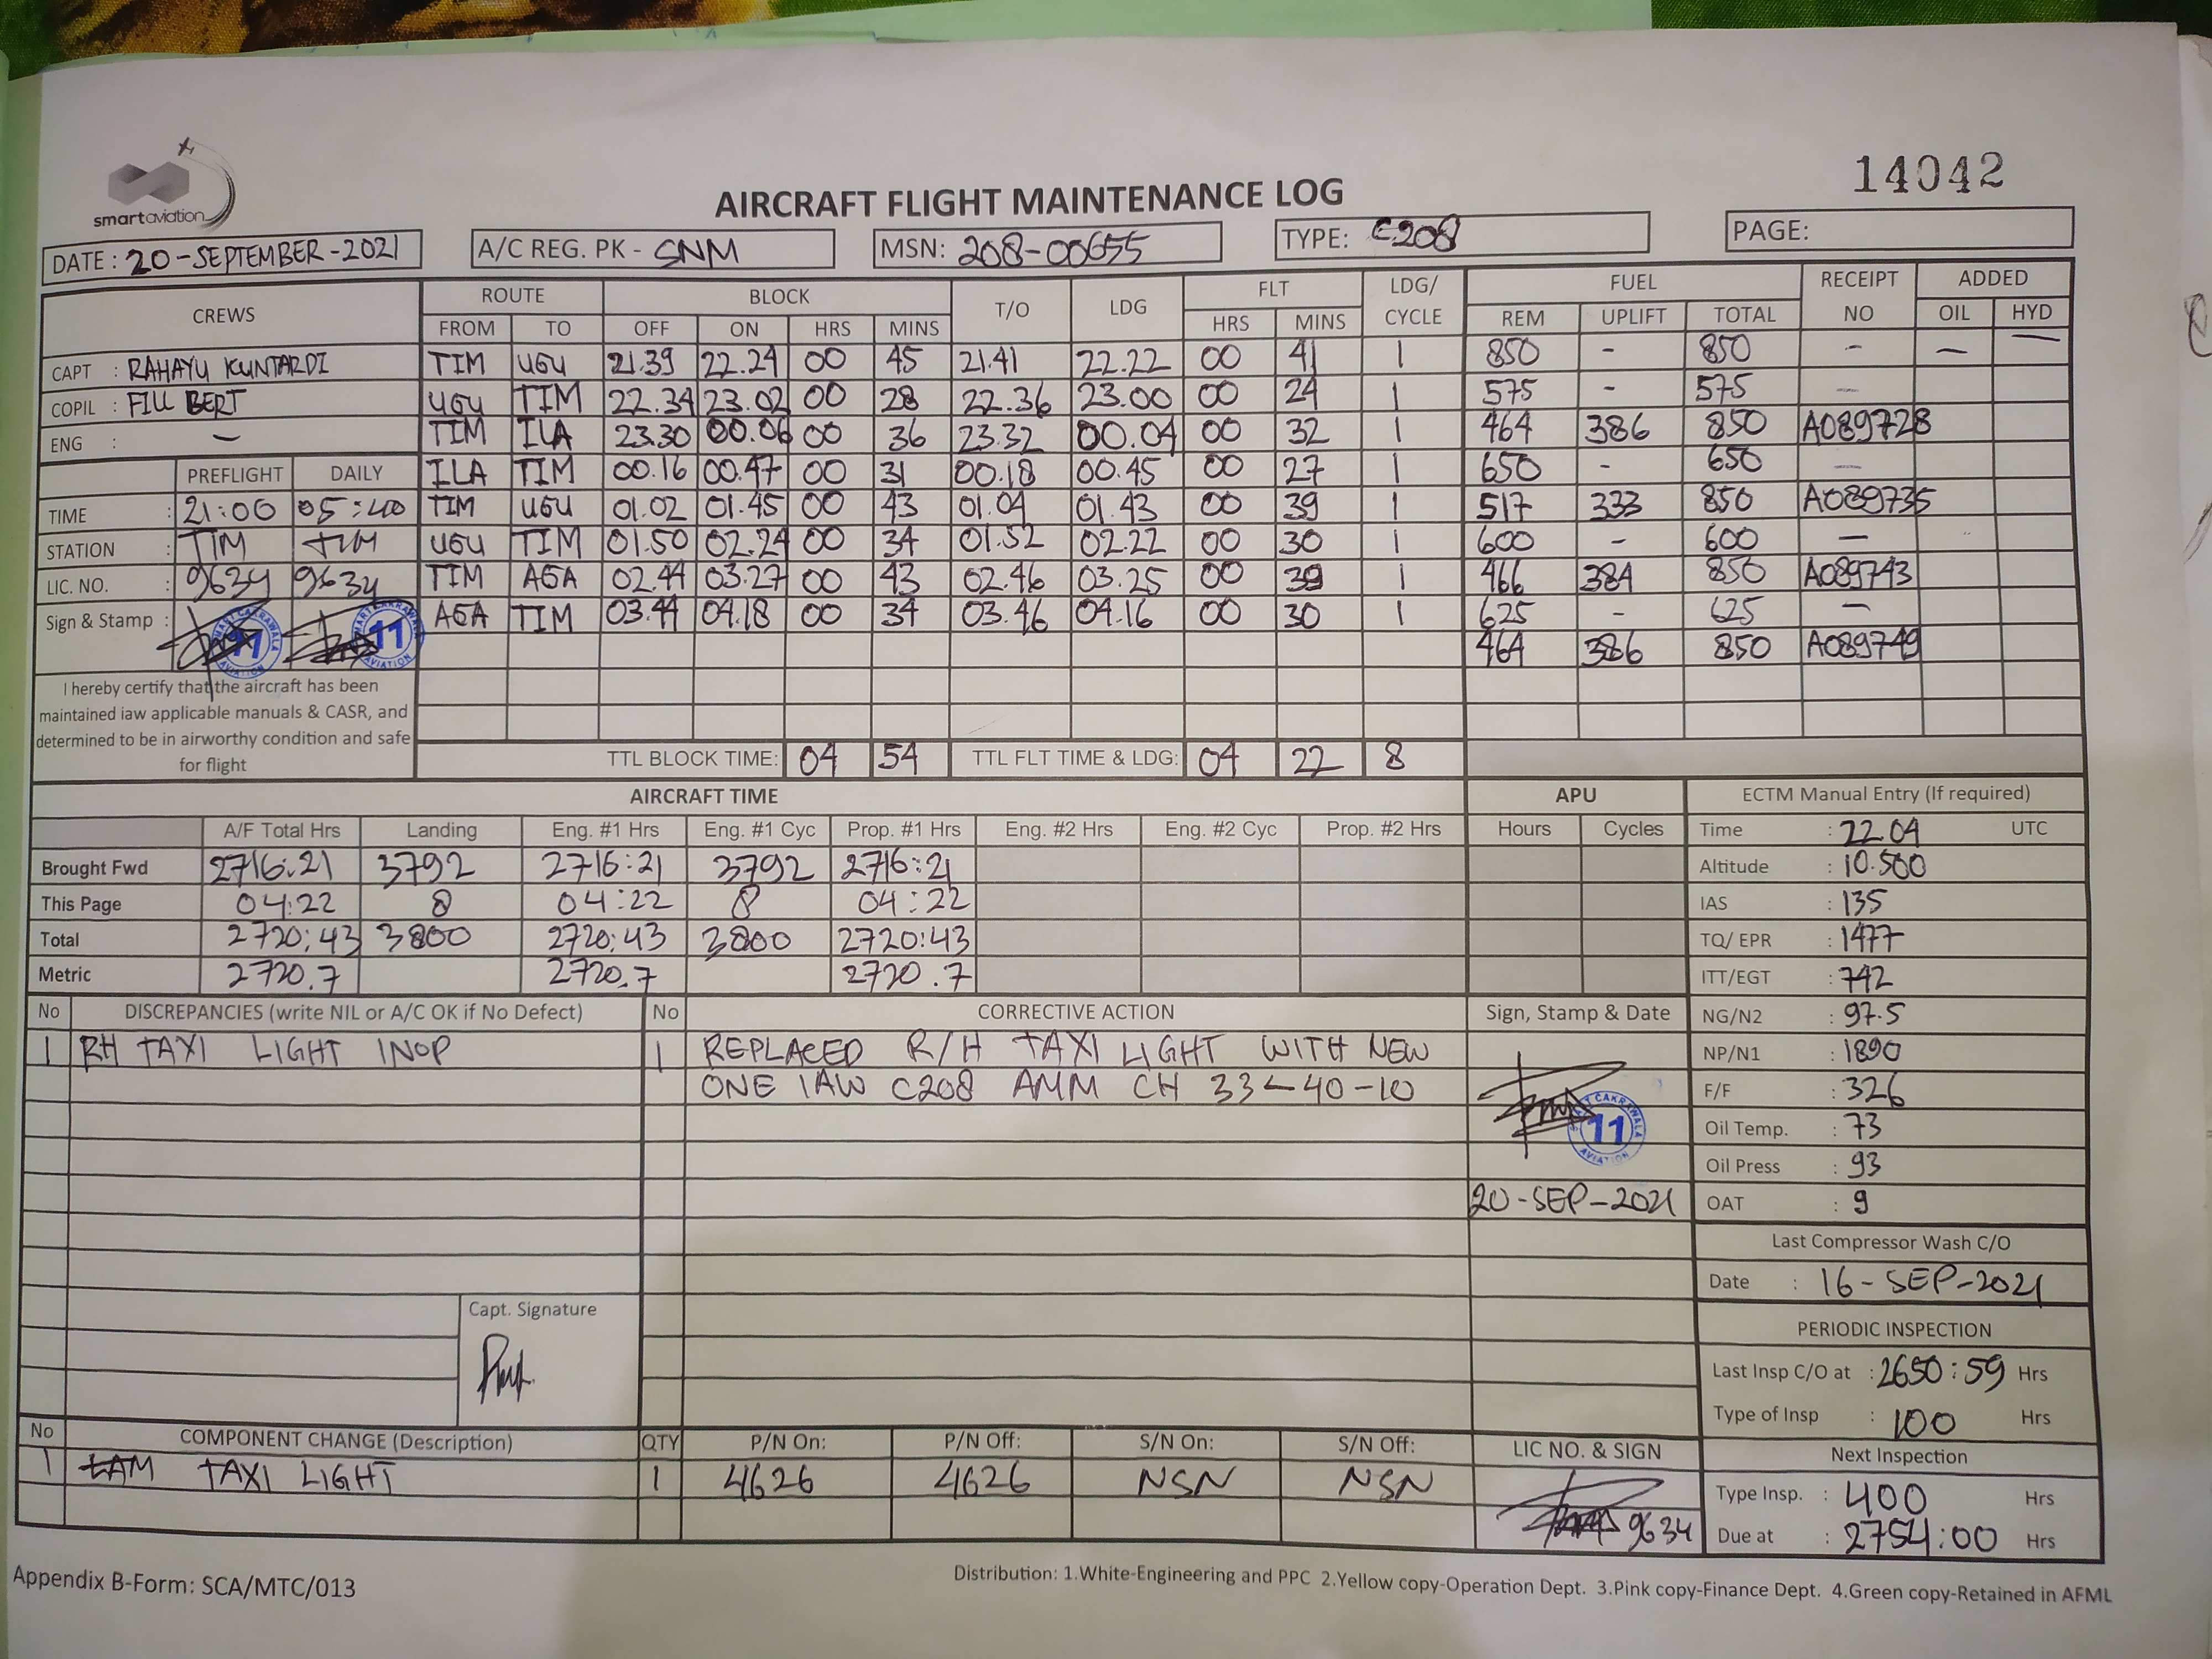 14042
smart aviation
AIRCRAFT FLIGHT MAINTENANCE LOG
DATE : 20-SEPTEMBER-2021 A/C REG. PK - SNM MSN: 208-00655 TYPE: C208 PAGE:
CREWS ROUTE BLOCK T/O LDG FLT LDG/ CYCLE FUEL RECEIPT NO ADDED
FROM TO OFF ON HRS MINS HRS MINS REM UPLIFT TOTAL OIL HYD
CAPT : RAHAYU KUNTARDI TIM UGU 21.39 22.24 00 45 21.41 22.22 00 41 1 850 - 850 - — —
COPIL : FILL BERT UGU TIM 22.34 23.02 00 28 22.36 23.00 00 24 1 575 - 575 —
ENG : — TIM ILA 23.30 00.06 00 36 23.32 00.04 00 32 1 464 386 850 A089728
PREFLIGHT DAILY ILA TIM 00.16 00.47 00 31 00.18 00.45 00 27 1 650 - 650 —
TIME : 21:00 05:40 TIM UGU 01.02 01.45 00 43 01.04 01.43 00 39 1 517 333 850 A089735
STATION : TIM TIM UGU TIM 01.50 02.24 00 34 01.52 02.22 00 30 1 600 - 600 —
LIC. NO. : 9634 9634 TIM AGA 02.44 03.27 00 43 02.46 03.25 00 39 1 466 384 850 A089743
Sign & Stamp : AGA TIM 03.44 04.18 00 34 03.46 04.16 00 30 1 625 - 625 —
11 11 464 386 850 A089749
I hereby certify that the aircraft has been
maintained iaw applicable manuals & CASR, and
determined to be in airworthy condition and safe
for flight
TTL BLOCK TIME: 04 54 TTL FLT TIME & LDG: 04 22 8
AIRCRAFT TIME APU ECTM Manual Entry (If required)
A/F Total Hrs Landing Eng. #1 Hrs Eng. #1 Cyc Prop. #1 Hrs Eng. #2 Hrs Eng. #2 Cyc Prop. #2 Hrs Hours Cycles Time : 22 04 UTC
Brought Fwd 2716:21 3792 2716:21 3792 2716:21 Altitude : 10.500
This Page 04:22 8 04:22 8 04:22 IAS : 135
Total 2720:43 3800 2720:43 3800 2720:43 TQ/ EPR : 1477
Metric 2720.7 2720.7 2720.7 ITT/EGT : 742
No DISCREPANCIES (write NIL or A/C OK if No Defect) No CORRECTIVE ACTION Sign, Stamp & Date NG/N2 : 97.5
1 RH TAXI LIGHT INOP 1 REPLACED R/H TAXI LIGHT WITH NEW NP/N1 : 1890
ONE IAW C208 AMM CH 33-40-10 F/F : 326
SMART CAKRAWALA AVIATION 11 Oil Temp. : 73
Oil Press : 93
20-SEP-2021 OAT : 9
Last Compressor Wash C/O
Date : 16-SEP-2021
Capt. Signature
PERIODIC INSPECTION
Last Insp C/O at : 2650:59 Hrs
Type of Insp : 100 Hrs
No COMPONENT CHANGE (Description) QTY P/N On: P/N Off: S/N On: S/N Off: LIC NO. & SIGN Next Inspection
1 TAXI LIGHT 1 4626 4626 NSN NSN Type Insp. : 400 Hrs
9634 Due at : 2754:00 Hrs
Appendix B-Form: SCA/MTC/013
Distribution: 1.White-Engineering and PPC 2.Yellow copy-Operation Dept. 3.Pink copy-Finance Dept. 4.Green copy-Retained in AFML